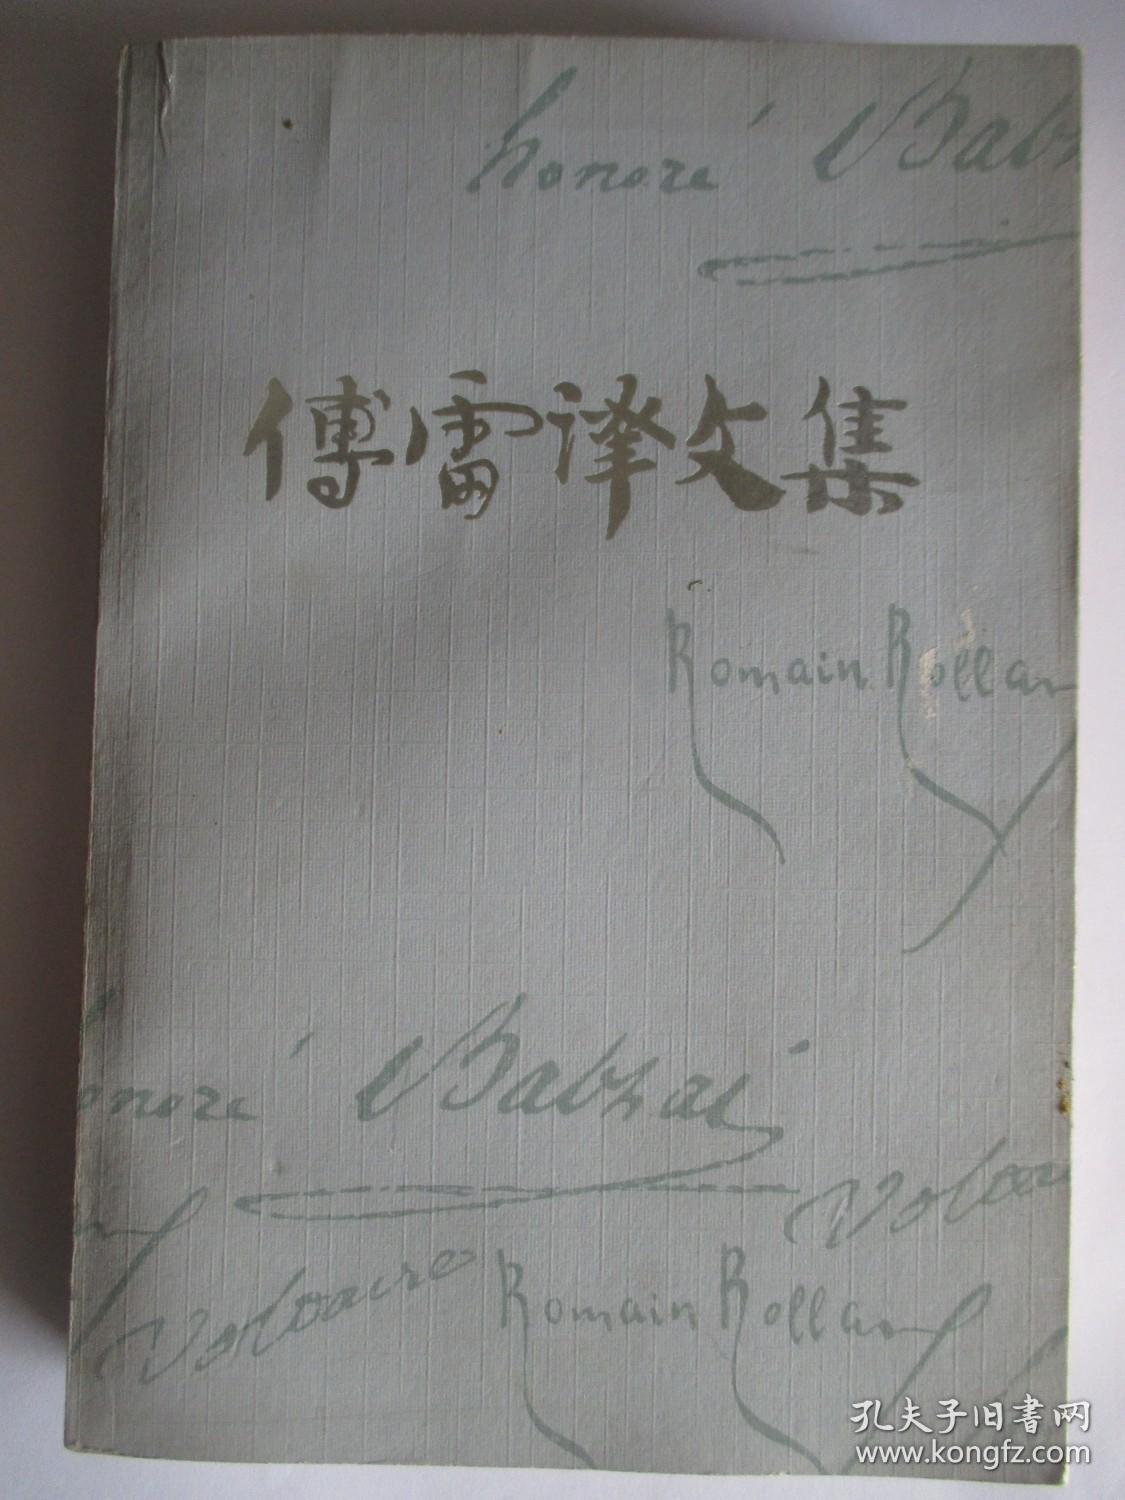 honoré Balz
傅雷譯文集
Romain Rollan
onoré Balzac
Voltaire
Voltaire
Romain Rolland
孔夫子旧書网
www.kongfz.com